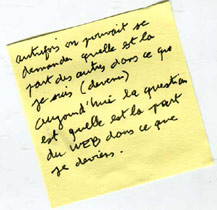 autrefois on pouvait se
demander quelle est la
part des autres dans ce que
je suis (devenu)
aujourd'hui la question
est quelle est la part
du WEB dans ce que
je deviens.